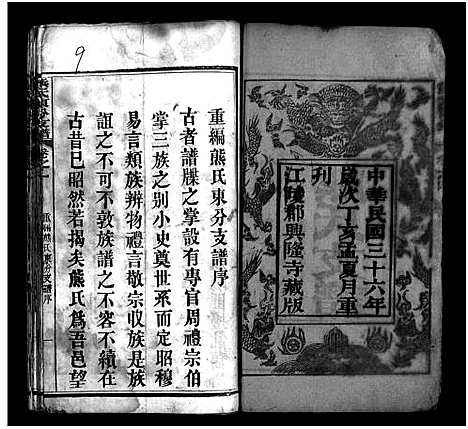 中華民國三十六年
歲次丁亥孟夏月重
刊
江陵郡興隆寺藏版
9
重編熊氏東分支譜序
古者譜牒之掌設有專官周禮宗伯
掌三族之别小史奠世系而定昭穆
易言類族辨物禮言敬宗收族是族
誼之不可不敦族譜之不容不續在
古昔已昭然若揭矣熊氏爲吾邑望
熊氏東分支譜
卷之一
重編熊氏東分支譜序
一